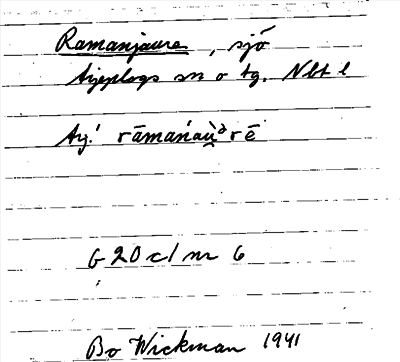 Ramanjaure, sjö
Arjeplogs sn o tg. Nbt l
Arj. rāmańau̯ᵊrē
G 20 c/ nr 6
Bo Wickman 1941